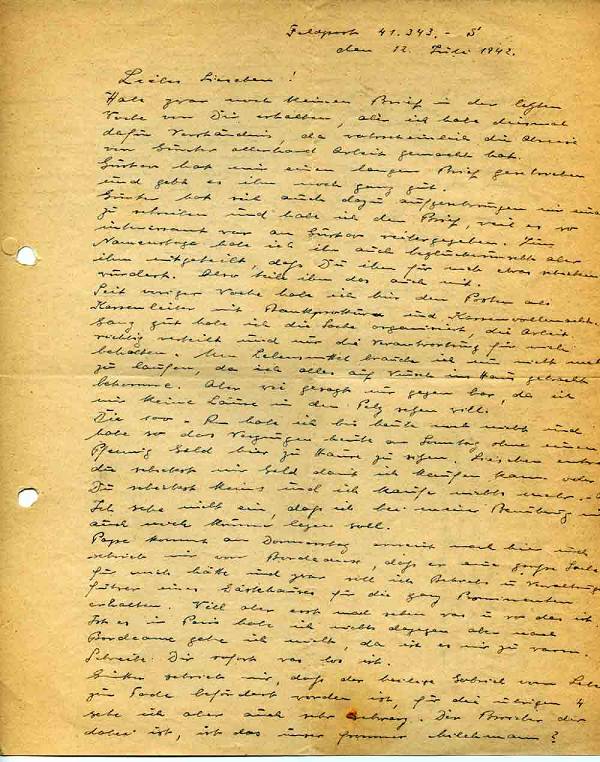 Feldpost 41.343.- S
den 12. Juli 1942.
Liebes Lieschen!
Habe zwar noch keinen Brief in der letzten
Woche von Dir erhalten, aber ich habe diesmal
dafür Verständnis, da wahrscheinlich die Abreise
von Günter allerhand Arbeit gemacht hat.
Gustav hat mir einen langen Brief geschrieben
und geht es ihm noch ganz gut.
Günter hat sich auch dazu aufgeschwungen mir
zu schreiben und habe ich den Brief, weil es so
interessant war an Gustav weitergegeben. Zum
Namenstage habe ich ihn auch beglückwünscht aber
ihm mitgeteilt, dass Du ihm für mich etwas schicken
würdest. Also teile ihm das auch mit.
Seit voriger Woche habe ich hier den Posten als
Kassenleiter mit Bankprokura und Kassenvollmacht.
Ganz gut habe ich die Sache organisiert, die Arbeit
richtig verteilt und nur die Verantwortung für mich
behalten. Um Lebensmittel brauche ich nun nicht mehr
zu laufen, da ich alles auf Wunsch ins Haus gebracht
bekomme. Aber wie gesagt nur gegen bar, da ich
mir keine Läuse in den Pelz setzen will.
Die 100 - Rm habe ich bis heute noch nicht und
habe so das Vergnügen heute am Sonntag ohne einen
Pfennig Geld hier zu Hause zu sitzen. Lieschen
Du schickst mir Geld damit ich kaufen kann oder
Du schickst keins und ich kaufe nichts mehr.
Ich sehe nicht ein, dass ich bei meiner Bemühung
auch noch krumm legen soll.
Pape kommt am Donnerstag erneut nach hier und
schrieb mir von Bordeaux, dass er eine große Sache
für mich hätte und zwar soll ich Betriebs u Verwaltungs
führer eines Gästehauses für die ganz Prominenten
erhalten. Will aber erst mal sehen was u wo das ist.
Ist es in Paris habe ich nichts dagegen aber nach
Bordeaux gehe ich nicht, da ist es mir zu warm.
Schreibe Dir sofort was los ist.
schrieb mir, dass der heilige vom Leben
zum Tode befördert worden ist, für die übrigen 4
sehe ich aber auch sehr schwarz. Der Broscher der
dabei ist, ist das unser frommer Milchmann?